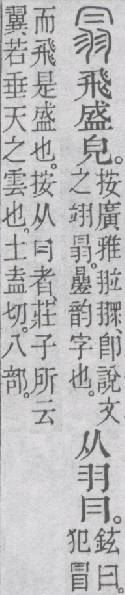 𦐇
飛盛皃。
按廣雅翋𦑣卽說文
之翊𦐇。疊韵字也。
从羽冃。
鉉曰。
犯冒
而飛是盛也。按从冃者、莊子所云
翼若垂天之雲也。土盍切。八部。